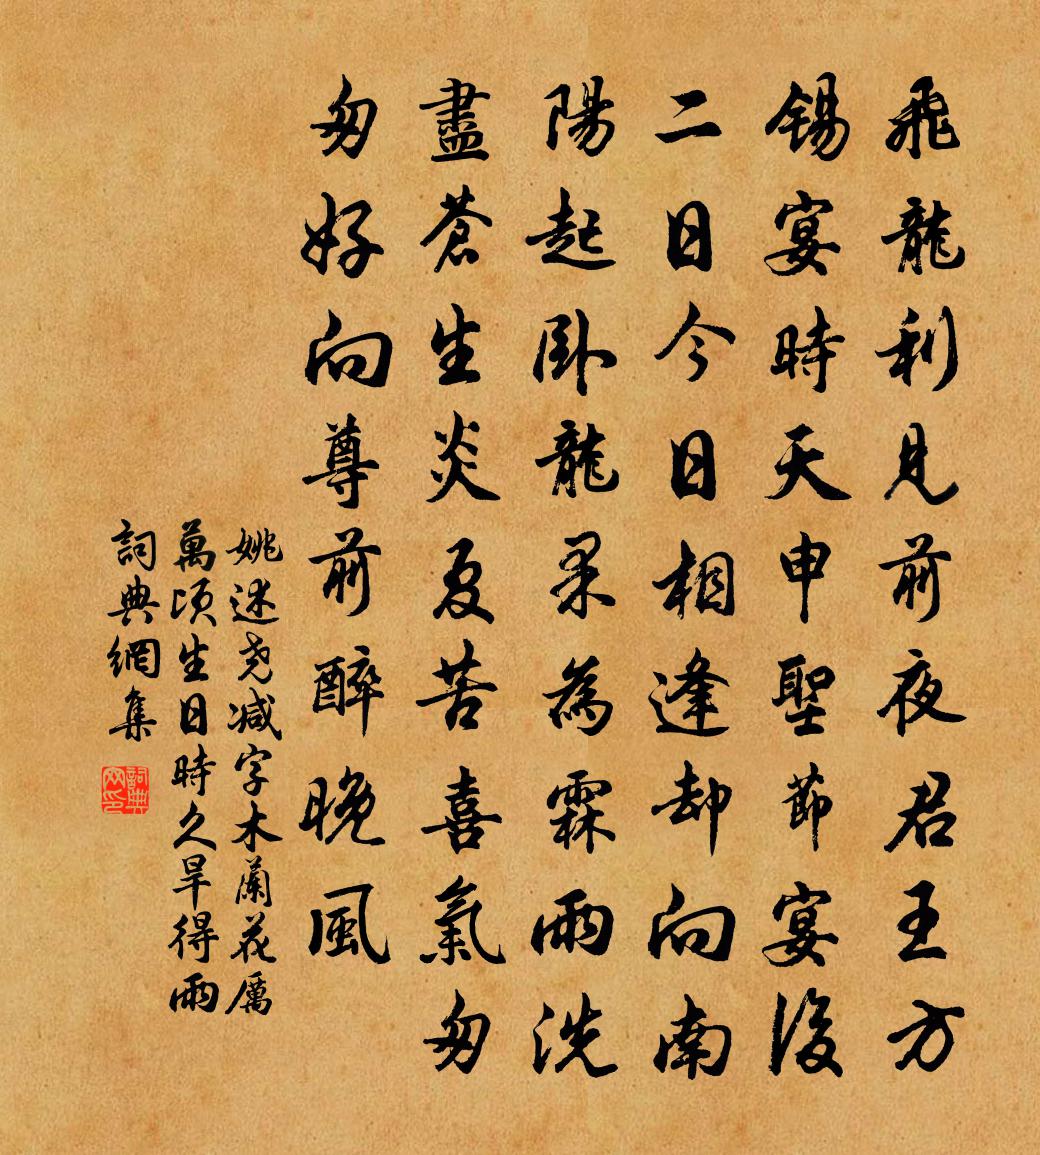 飛龍利見前夜君王方
錫宴時天申聖節宴後
二日今日相逢却向南
陽起卧龍柔為霖雨洗
盡蒼生炎夏苦喜氣匆
匆好向尊前醉晚風
姚述堯减字木蘭花厲
萬頃生日時久旱得雨
詞典網集
詞典網印